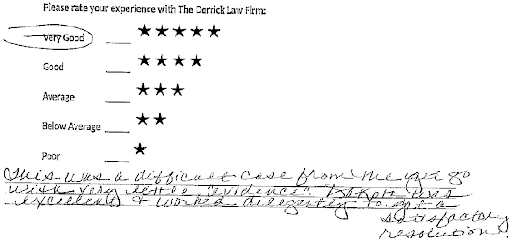 Please rate your experience with The Derrick Law Firm:
Very Good ____ ★★★★★
Good ____ ★★★★
Average ____ ★★★
Below Average ____ ★★
Poor ____ ★
This was a difficult case from the get go
with very little "evidence". was
excellent & worked diligently to get a
satisfactory
resolution!